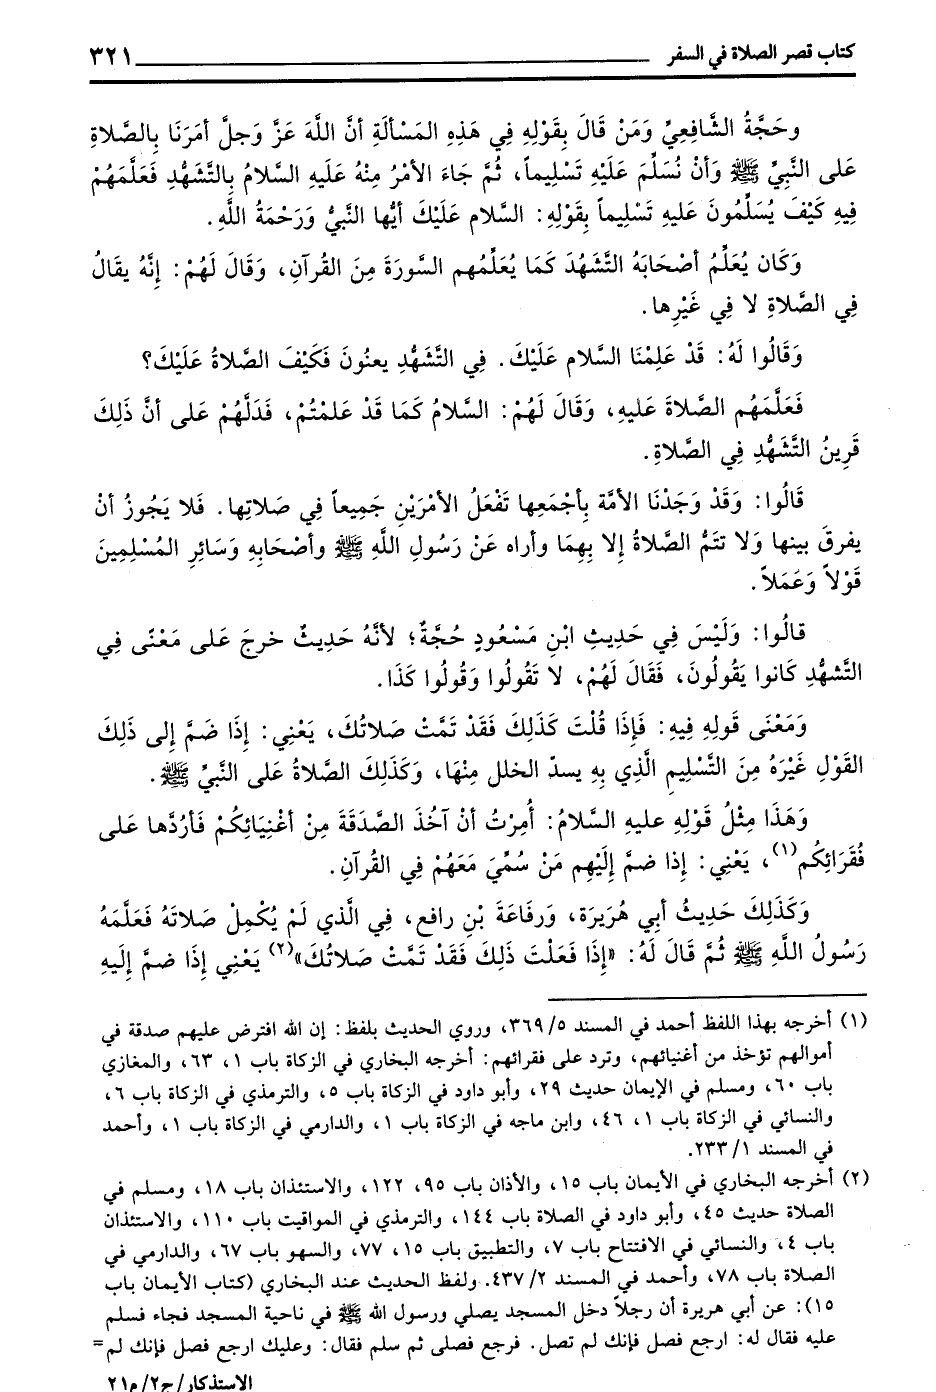 كتاب قصر الصلاة في السفر ٣٢١
وحَجَّةُ الشَّافِعِيِّ وَمَنْ قَالَ بِقَوْلِهِ فِي هَذِهِ المَسْألَةِ أنَّ اللَّهَ عَزَّ وَجلَّ أمَرَنَا بِالصَّلاةِ
عَلى النَّبِيِّ ﷺ وَأنْ نُسَلِّمَ عَلَيْهِ تَسْلِيماً، ثُمَّ جَاءَ الأمْرُ مِنْهُ عَلَيهِ السَّلامُ بِالتَّشَهُّدِ فَعَلَّمَهُمْ
فِيهِ كَيْفَ يُسَلِّمُونَ عَليهِ تَسْلِيماً بِقَوْلِهِ: السَّلام عَلَيْكَ أيُّها النَّبيُّ وَرَحْمَةُ اللَّهِ.
وَكَان يُعَلِّمُ أصْحَابَهُ التَّشَهُدَ كَمَا يُعَلِّمُهم السَّورَةَ مِنَ القُرآنِ، وَقَالَ لَهُمْ: إنَّهُ يقَالُ
فِي الصَّلاةِ لا فِي غَيْرِها.
وَقَالُوا لَهُ: قَدْ عَلِمْنَا السَّلام عَلَيْكَ. فِي التَّشَهُّدِ يعنُونَ فَكَيْفَ الصَّلاةُ عَلَيْكَ؟
فَعَلَّمَهُم الصَّلاةَ عَليهِ، وَقَالَ لَهُمْ: السَّلامُ كَمَا قَدْ عَلمْتُمْ، فَدَلَّهُمْ عَلى أنَّ ذَلِكَ
قَرِينُ التَّشَهُّدِ فِي الصَّلاةِ.
قَالُوا: وَقَدْ وَجَدْنَا الأمَّة بِأجْمَعِها تَفْعَلُ الأمْرَيْنِ جَمِيعاً فِي صَلاتِها. فَلا يَجُوزُ أنْ
يفرقَ بينها وَلا تتَمُّ الصَّلاةُ إلا بِهِمَا وأراه عَنْ رَسُولِ اللَّهِ ﷺ وأصْحَابِهِ وَسَائِرِ المُسْلِمِينَ
قَوْلاً وَعَمَلاً.
قالُوا: وَلَيْسَ فِي حَدِيثِ ابْنِ مَسْعُودٍ حُجَّةٌ؛ لأنَّهُ حَدِيثٌ خرجَ عَلى مَعْنًى فِي
التَّشهُّدِ كَانوا يَقُولُونَ، فَقَالَ لَهُمْ، لا تَقُولُوا وَقُولُوا كَذَا.
وَمَعْنَى قَولِهِ فِيه: فَإذَا قُلْتَ كَذَلِكَ فَقَدْ تَمَّتْ صَلاتُكَ، يَعْنِي: إذَا ضَمَّ إلى ذَلِكَ
القَوْلِ غَيْرَهُ مِنَ التَّسْلِيمِ الَّذِي بِهِ يسدّ الخلل مِنْهَا، وَكَذَلِكَ الصَّلاةُ عَلى النَّبيِّ ﷺ.
وَهَذَا مِثْلُ قَوْلِهِ عليهِ السَّلامُ: أُمِرْتُ أنْ آخُذَ الصَّدَقَةَ مِنْ أغْنِيَائِكُمْ فَأرُدَّها عَلى
فُقَرَائِكُم(١)، يَعْنِي: إذَا ضمَّ إلَيْهِم مَنْ سُمِّيَ مَعَهُمْ فِي القُرآنِ.
وَكَذَلِكَ حَدِيثُ أبي هُرَيرَةَ، وَرفَاعَةَ بْنِ رافع، فِي الَّذي لَمْ يُكْمِلْ صَلاتَهُ فَعَلَّمَهُ
رَسُولُ اللَّهِ ﷺ ثُمَّ قَالَ لَهُ: «إذَا فَعَلْتَ ذَلِكَ فَقَدْ تَمَّتْ صَلاتُكَ»(٢) يَعْنِي إذَا ضمَّ إلَيهِ
(١) أخرجه بهذا اللفظ أحمد في المسند ٥/ ٣٦٩، وروي الحديث بلفظ: إن الله افترض عليهم صدقة في
أموالهم تؤخذ من أغنيائهم، وترد على فقرائهم: أخرجه البخاري في الزكاة باب ١، ٦٣، والمغازي
باب ٦٠، ومسلم في الإيمان حديث ٢٩، وأبو داود في الزكاة باب ٥، والترمذي في الزكاة باب ٦،
والنسائي في الزكاة باب ١، ٤٦، وابن ماجه في الزكاة باب ١، والدارمي في الزكاة باب ١، وأحمد
في المسند ١/ ٢٣٣.
(٢) أخرجه البخاري في الأيمان باب ١٥، والأذان باب ٩٥، ١٢٢، والاستئذان باب ١٨، ومسلم في
الصلاة حديث ٤٥، وأبو داود في الصلاة باب ١٤٤، والترمذي في المواقيت باب ١١٠، والاستئذان
باب ٤، والنسائي في الافتتاح باب ٧، والتطبيق باب ١٥، ٧٧، والسهو باب ٦٧، والدارمي في
الصلاة باب ٧٨، وأحمد في المسند ٢/ ٤٣٧. ولفظ الحديث عند البخاري (كتاب الأيمان باب
١٥): عن أبي هريرة أن رجلاً دخل المسجد يصلي ورسول الله ﷺ في ناحية المسجد فجاء فسلم
عليه فقال له: ارجع فصل فإنك لم تصل. فرجع فصلى ثم سلم فقال: وعليك ارجع فصل فإنك لم =
الاستذكار/ ج٢/ م٢١